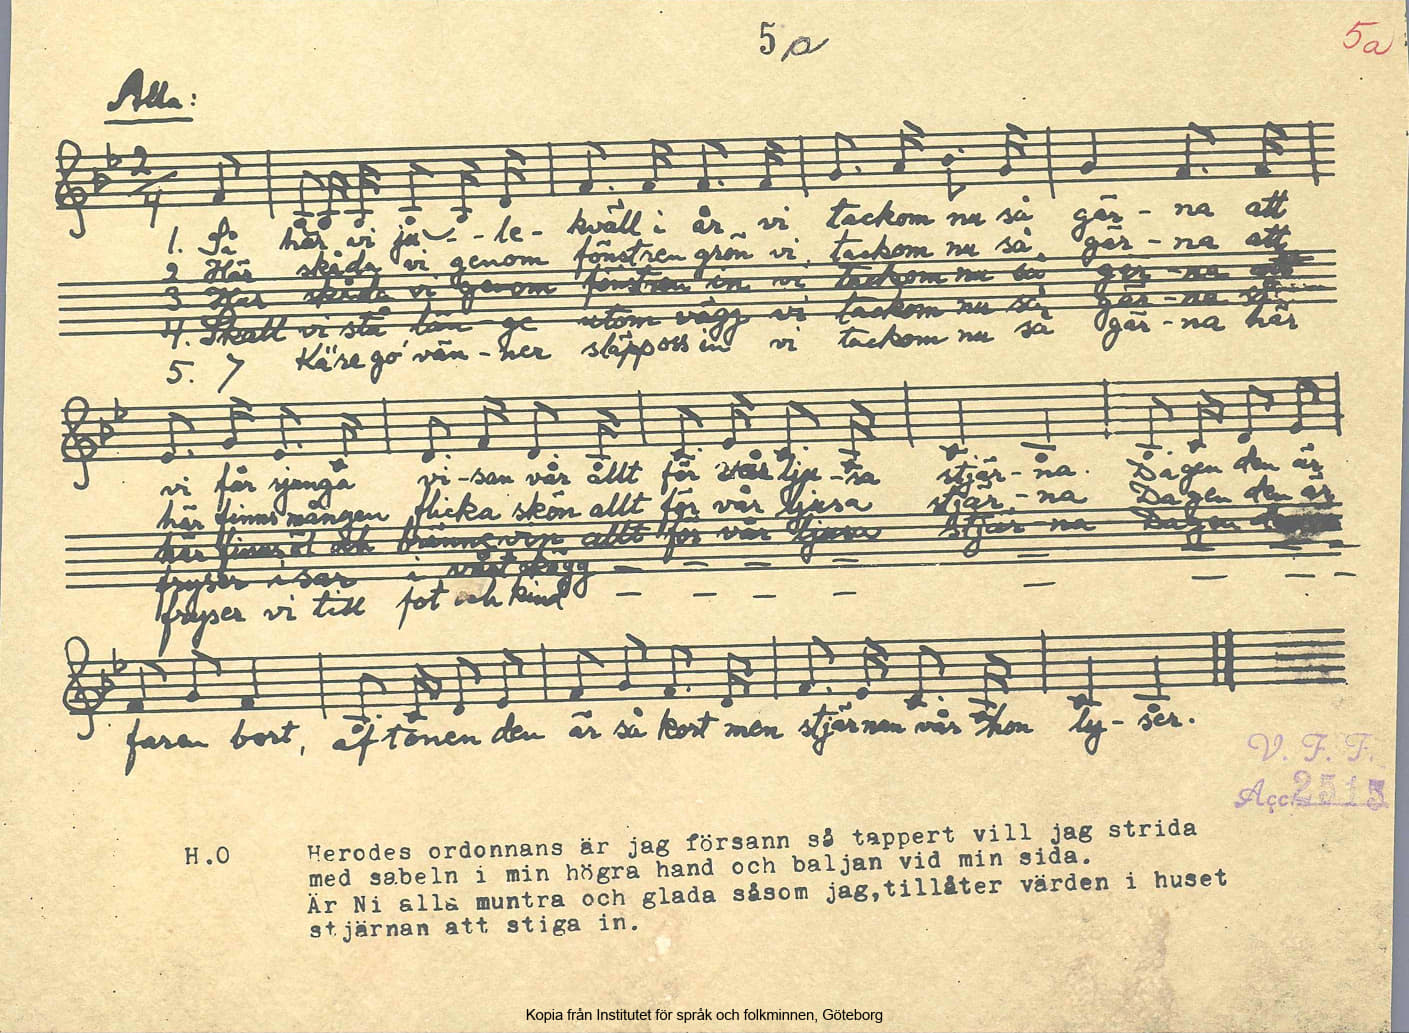 5 a
5a
Alla:
1. Så här vi ju - - le - kväll i år vi tackom nu så gär - na att
2 Här skåda vi genom fönstren grön vi tackom nu så gär - na att
3 Här skåda vi genom fönstren in vi tackom nu så gär - na
4. Skall vi stå län - ge utom vägg vi tackom nu så gär - na
5. 7 Kä're go' vän - ner släpp oss in vi tackom nu så gär - na här
vi får sjunga vi - san vår allt för vår lju - sa stjär - na. Dagen den är
här finns mången flicka skön allt för vår ljusa stjär - na Dagen den är
här finns öl och brännevin allt för vår ljusa stjär - na Dagen
fryser isar i vårt skägg
fryser vi till fot och kind
faren bort, af - tonen den är så kort men stjärnan vår hon ly - ser.
V. F. F.
Acc. 2515
H.O Herodes ordonnans är jag försann så tappert vill jag strida
med sabeln i min högra hand och baljan vid min sida.
Är Ni alla muntra och glada såsom jag,tillåter värden i huset
stjärnan att stiga in.
Kopia från Institutet för språk och folkminnen, Göteborg